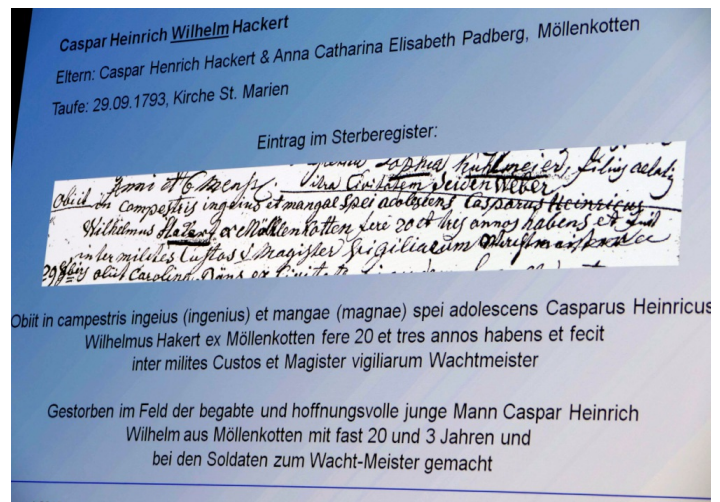 Caspar Heinrich Wilhelm Hackert
Eltern: Caspar Henrich Hackert & Anna Catharina Elisabeth Padberg, Möllenkotten
Taufe: 29.09.1793, Kirche St. Marien
Eintrag im Sterberegister:
filius
extra Civitatem Seidenweber
Obiit in campestris ingeius et mangae spei adolescens Casparus Heinricus
Wilhelmus Hakert ex Möllenkotten fere 20 et tres annos habens et
inter milites Custos & Magister Vigiliarum
obiit ex
Obiit in campestris ingeius (ingenius) et mangae (magnae) spei adolescens Casparus Heinricus
Wilhelmus Hakert ex Möllenkotten fere 20 et tres annos habens et fecit
inter milites Custos et Magister vigiliarum Wachtmeister
Gestorben im Feld der begabte und hoffnungsvolle junge Mann Caspar Heinrich
Wilhelm aus Möllenkotten mit fast 20 und 3 Jahren und
bei den Soldaten zum Wacht-Meister gemacht